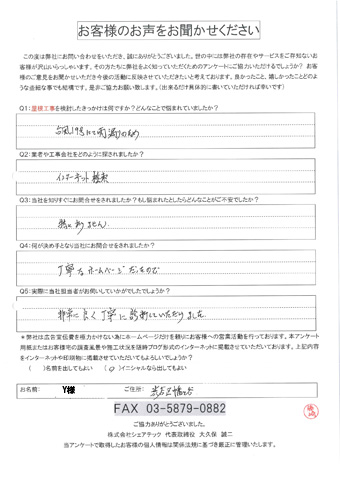 お客様のお声をお聞かせください
この度は弊社にお問い合わせをいただき、誠にありがとうございました。世の中には弊社の存在やサービスをご存知ないお
客様が沢山いらっしゃいます。その方たちに弊社をよく知っていただくためのアンケートにご協力いただけるでしょうか？ お客
様のご意見をお聞かせいただき今後の活動に反映させていただきたいと考えております。良かったこと、嬉しかったことどのよ
うな些細な事でも結構です。是非ご協力お願い致します。（出来るだけ具体的に書いていただければ幸いです）
Q1:屋根工事を検討したきっかけは何ですか？どんなことで悩まれていましたか？
台風19号にて雨漏りのため
Q2:業者や工事会社をどのように探されましたか？
インターネット検索
Q3:当社を知りすぐにお問合せをされましたか？もし悩まれたとしたらどんなことがご不安でしたか？
特にありません
Q4:何が決め手となり当社にお問合せをされましたか？
丁寧なホームページだったので
Q5:実際に当社担当者がお伺いしていかがでしたでしょうか？
非常に良く丁寧に診断していただけました
＊弊社は広告宣伝費を極力かけない為にホームページだけを頼りにお客様への営業活動を行っております。本アンケート
用紙またはお客様宅の調査風景や施工状況を随時ブログ形式のインターネットに掲載させていただいております。上記内容
をインターネットや印刷物に掲載させていただいてもよろしいでしょうか？
（　）名前を出してもよい　（○）イニシャルなら出してもよい
お名前： Y様 ご住所：
FAX 03-5879-0882
ご協力ありがとうございました。
株式会社シェアテック 代表取締役 大久保 誠二
当アンケートで取得したお客様の個人情報は関係法規に基づき厳正に管理いたします。